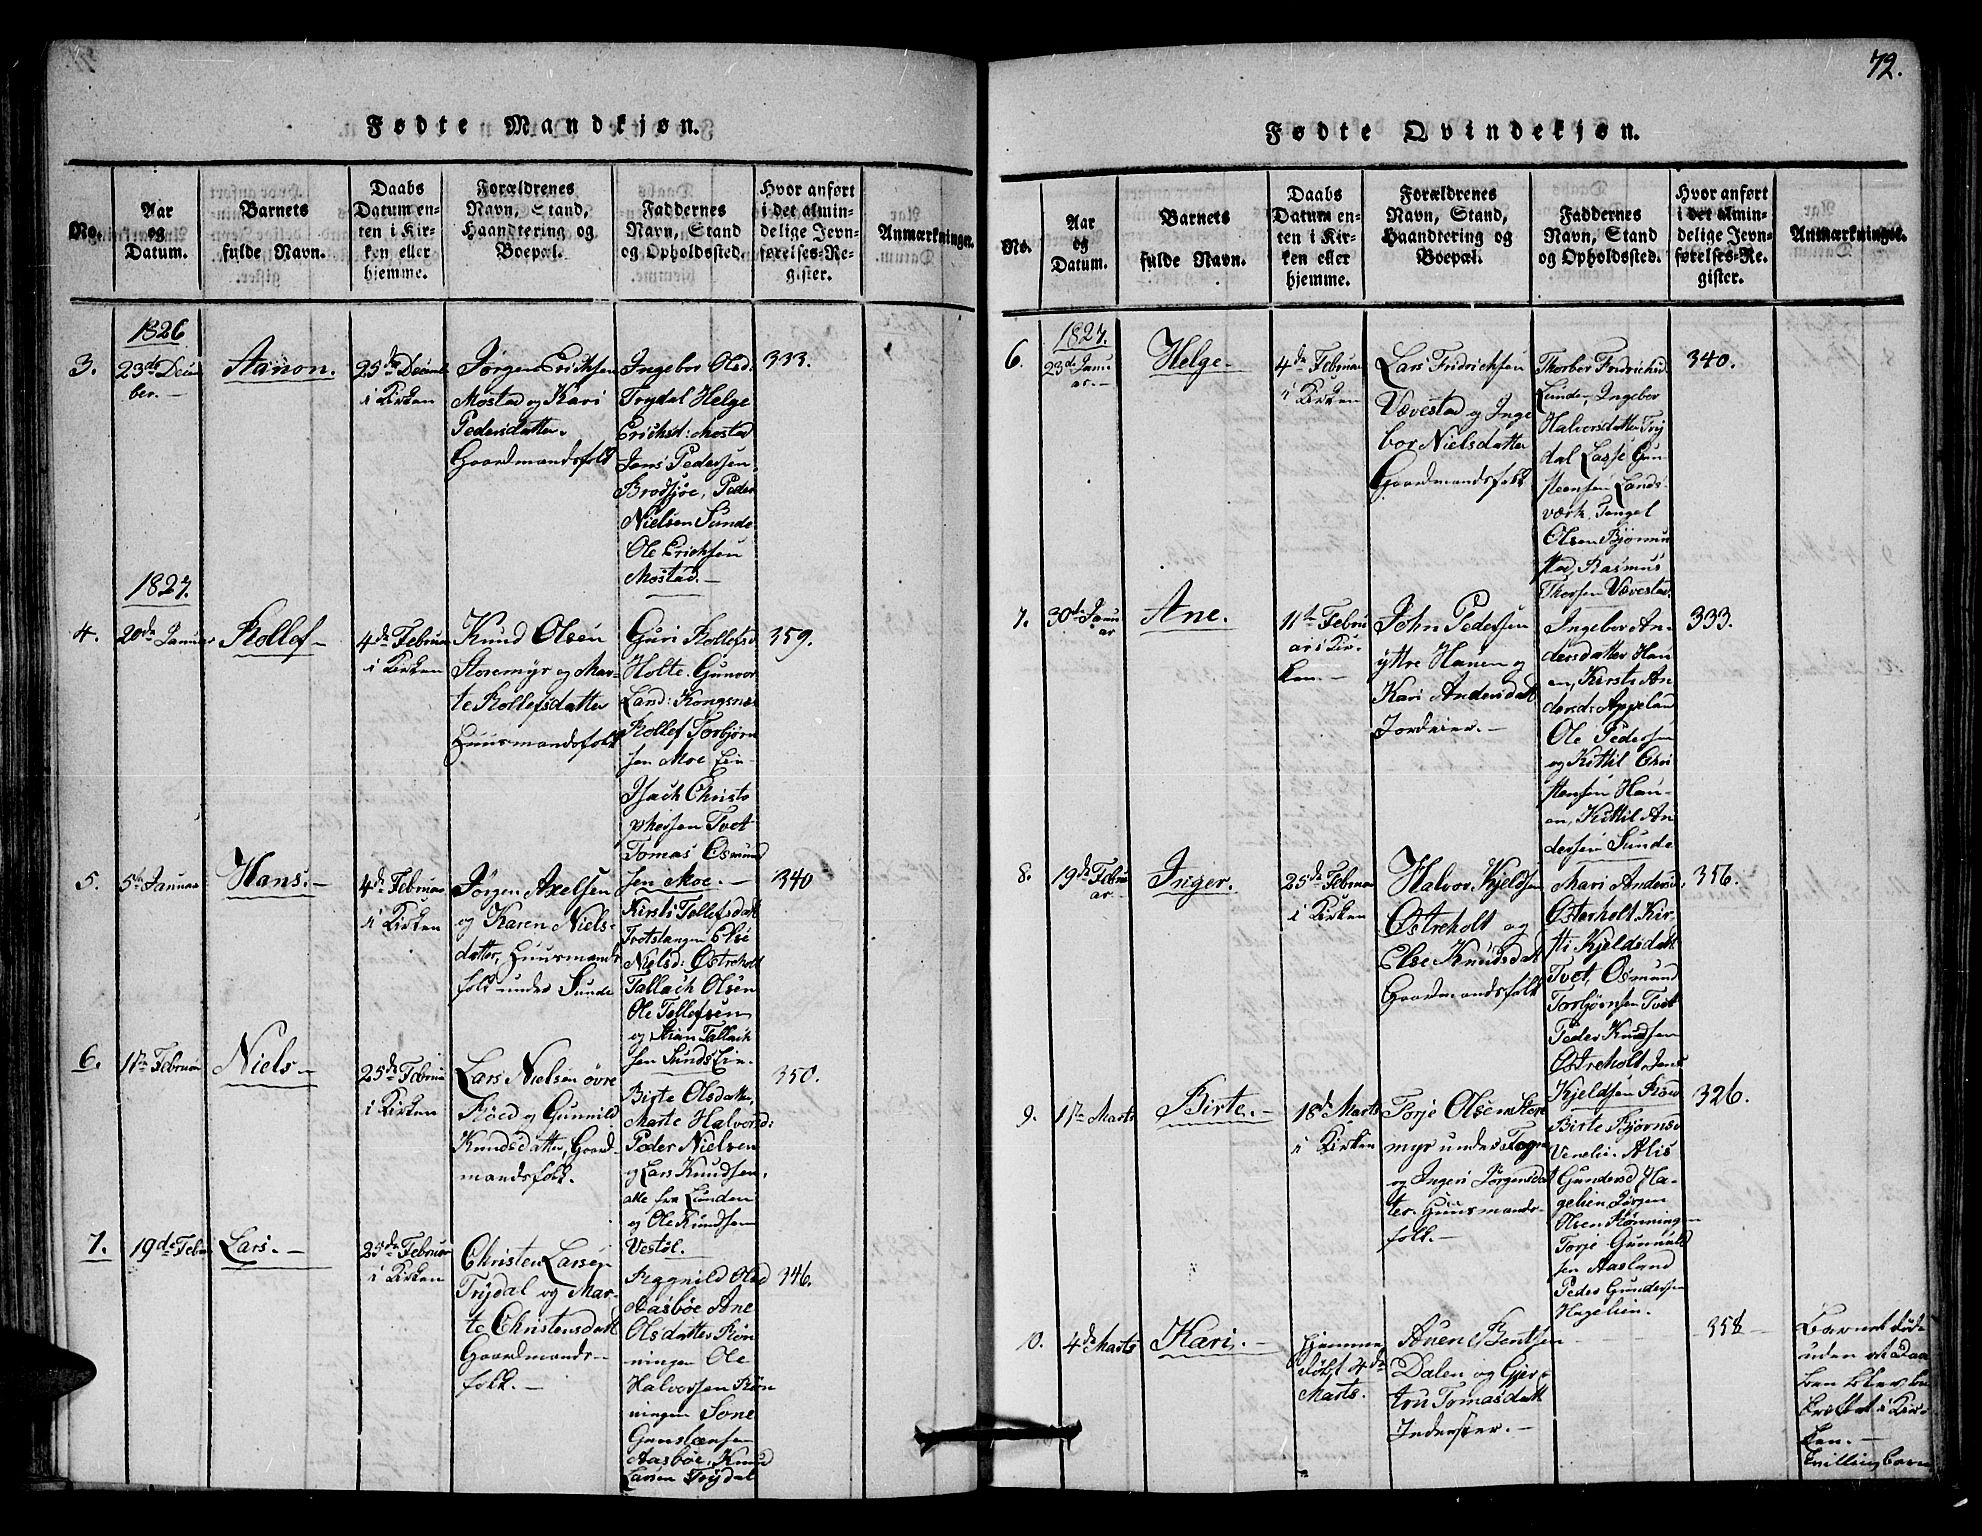 72.
Fødte Mandkjøn.
No.
Aar
og
Datum.
Barnets
fulde Navn.
Daabs
Datum en-
ten i Kir-
ken eller
hjemme.
Forældrenes
Navn, Stand,
Haandtering og
Boepæl.
Faddernes
Navn, Stand
og Opholdssted.
Hvor anført
i det almin-
delige Jevn-
førelses-Re-
gister.
Anmærkninger.
1826
3.
23de Decem
ber.
Aanon.
25de Decemb
i Kirken
Jørgen Erichsen
Mostad og Kari
Pedersdatter.
Gaardmandsfolk
Ingebor Olsd:
Trydal Helge
Erichsd: Mostad
Jens Pedersen
Brodsjøe, Peder
Nielsen Sunde
Ole Erichsen
Mostad.-
333.
1827.
4.
20de Januar
Rollef-
4de Februar
i Kirken
Knud Olsen
Storemyr og Mar-
te Rollefsdatter
Huusmandsfolk
Guri Rollefsd
Holte. Gunvor
Land: Kongsnæs
Rollef Torbjørn
sen Moe
Isach Christo
phersen Tvet
Tomas Osmund
sen Moe.-
359.
5.
5te Januar
Hans.-
4de Februar
i Kirken
Jørgen Axelsen
og Karen Niels-
datter, Huusmands
folk under Sunde
Kirsti Tollefsdatt
Tvetstangen Else
Nielsd: Østreholt
Tallach Olsen
Ole Tollefsen
og Stian Tallach
sen
340
6.
1ste Februar
Niels-
25de Februar
i Kirken
Lars Nielsen øvre
Røed og Gunnild
Knudsdatter, Gaard-
mandsfolk.
Birte Olsdatter,
Marte Halvorsd:
Peder Nielsen
og Lars Knudsen
alle fra Lunden
og Ole Knudsen
Vestøl.-
350.
7.
19de Febr
Lars.-
25de Februar
i Kirken
Christen Larsen
Trydal og Mar-
te Christensdatt
Gaardmands-
folk.-
Ragnild Olsd
Aasbøe Ane
Olsdatter Røn
ningen Ole
Halvorsen Røn
ningen Sone
Gunstensen
Aasbøe, Knud
Larsen Trydal
346.
Fødte Qvindekjøn.
No.
Aar
og
Datum.
Barnets
fulde Navn.
Daabs
Datum en-
ten i Kir-
ken eller
hjemme.
Forældrenes
Navn, Stand,
Haandtering og
Boepæl.
Faddernes
Navn, Stand
og Opholdssted.
Hvor anført
i det almin-
delige Jevn-
førelses-Re-
gister.
Anmærkninger.
1827.
6.
23de Janu
ar.-
Helge-
4de Februar
i Kirken
Lars Fridrichsen
Vævestad og Inge
bor Nielsdatter
Gaardmandsfolk
Thorber Fridrichsd.
Lunden, Ingebor
Halvorsdatter Try
dal Lasse Gun
steensen Lands-
værk. Tengel
Olsen Bjørmu
sted, Rasmus
Thorsen Vævestad.
340.
7.
30te Janu
ar
Ane.
11te Febru
ar i Kir-
ken.-
John Pedersen
yttre Hanen og
Kari Andersdatt
Jordeier.-
Ingebor An-
dersdatter Han-
en, Kirsti An
dersd: Appelan
Ole Pedersen
og Kittil Chri
stensen Han-
en, Kittil An
dersen Sunde
333.
8.
19de Febru
ar.
Inger.
25de Februar
i Kirken
Halvor Kjeldsen
Østreholt og
Else Knudsdatt
Gaardmandsfolk
Mari Andersd:
Østerholt Kir-
sti Kjeldsdatt
Tvet, Osmund
Torbjørnsen Tvet
Peder Knudsen
Østreholt, Jens
Kjeldsen Røed
356.
9.
1ste Marts
Birte.-
18de Marts
i Kirken
Torje Olsen Store
myr under Fogne
og Ingeri Jørgensdat
ter. Huusmands-
folk.-
Birte Bjørnsd
Venelie. Alis
Gundersd Ha-
gelien Jørgen
Olsen Rønningen
Torje Gunnuld
sen Aasland
Peder Gundersen
Hagelien.
326.
10.
4de Marts
Kari.-
hjemme
døbt 4de
Marts.
Auen Bentsen
Dalen og Gjer-
tru Tomasdatt
Inderster.-
358-
Barnet døde
uden at Daa
ben blev be
kræftet i Kir-
ken.-
Tvillingbarn